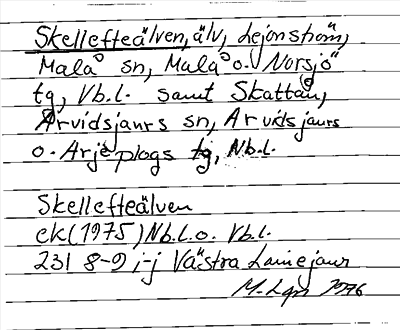 Skellefteälven, älv, Lejonström,
Malå sn, Malå o. Norsjö
tg, Vb.l. samt Skattån,
Arvidsjaurs sn, Arvidsjaurs
o. Arjeplogs tg, Nb.l.
Skellefteälven
ek (1975) Nb.l. o. Vb.l.
231 8-9 i-j Västra Lainejaur
M. Lgn 1976